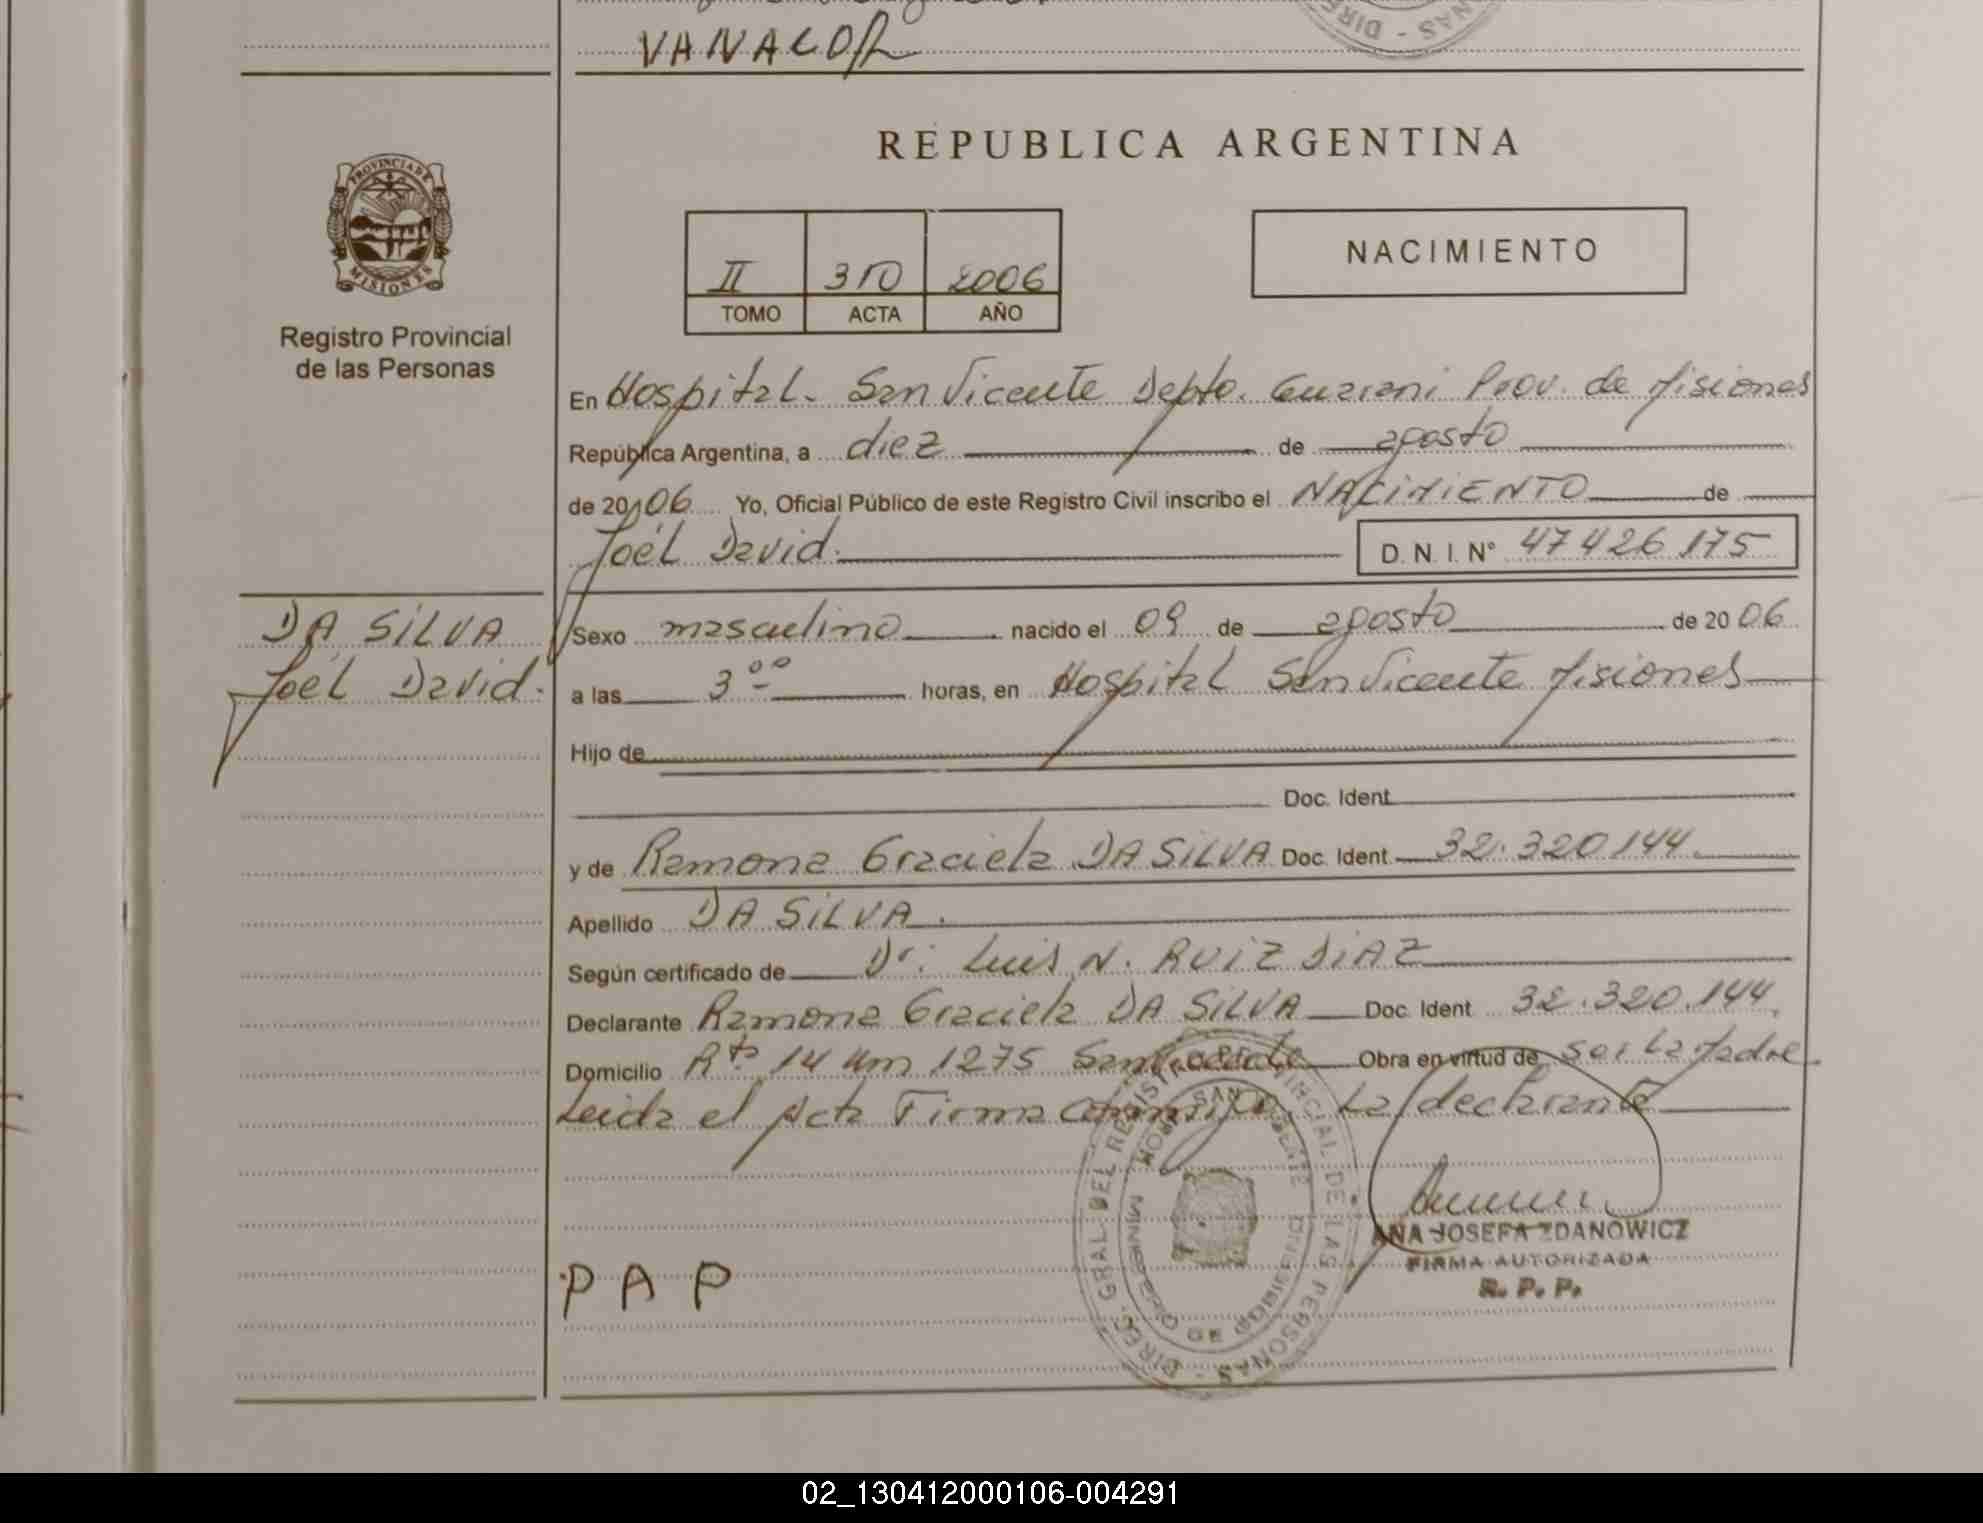 VANACOR
DIRE - NAS
PROVINCIA DE
MISIONES
Registro Provincial
de las Personas
REPUBLICA ARGENTINA
II 310 2006
TOMO ACTA AÑO
NACIMIENTO
En Hospital. San Vicente Depto. Guarani Prov. de Misiones
República Argentina, a diez de agosto
de 2006 Yo, Oficial Público de este Registro Civil inscribo el NACIMIENTO de
Joél David. D. N. I. N° 47426175
DA SILVA
Joél David.
Sexo masculino nacido el 09 de agosto de 2006
a las 3 00 horas, en Hospital San Vicente Misiones
Hijo de
Doc. Ident.
y de Ramona Graciela DA SILVA Doc. Ident. 32.320144.
Apellido DA SILVA.
Según certificado de Dr: Luis N. RUIZ DIAZ
Declarante Ramona Graciela DA SILVA Doc. Ident. 32.320.144.
Domicilio Rta 14 Km 1275 San Vicente Obra en virtud de ser La Madre
Leida el Acta Firma Conmigo. La declarante
DIREC. GRAL. DEL REGISTRO PROVINCIAL DE LAS PERSONAS -
HOSP. SAN VICENTE
MINISTERIO DE GOBIERNO
ANA JOSEFA ZDANOWICZ
FIRMA AUTORIZADA
R. P. P.
P A P
02_130412000106-004291